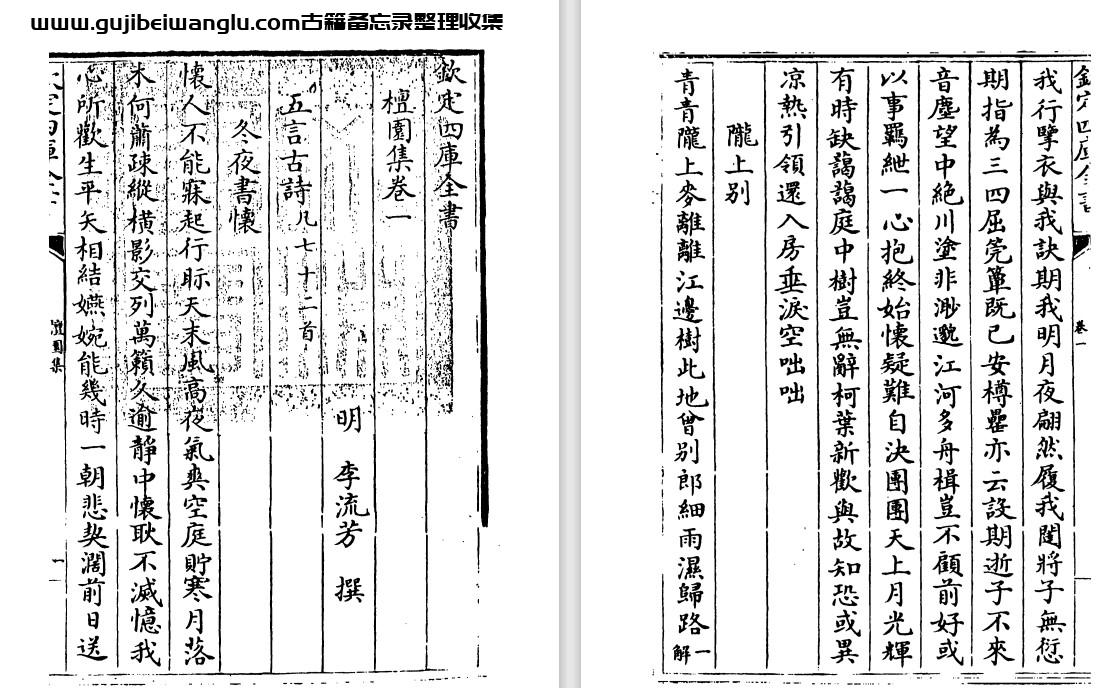 www.gujibeiwanglu.com古籍备忘录整理收集
欽定四庫全書
檀園集卷一
明 李流芳 撰
五言古詩凡七十二首
冬夜書懷
懷人不能寐起行眎天末風高夜氣爽空庭貯寒月落
木何蕭疎縱橫影交列萬籟久逾靜中懷耿不滅憶我
心所歡生平矢相結嬿婉能幾時一朝悲契濶前日送
檀園集
一
欽定四庫全書
卷一
我行擘衣與我訣期我明月夜翩然履我闥將子無愆
期指為三四屈筦簟既已安樽罍亦云設期逝子不來
音塵望中絕川塗非渺邈江河多舟楫豈不顧前好或
以事羈紲一心抱終始懷疑難自決團團天上月光輝
有時缺藹藹庭中樹豈無辭柯葉新歡與故知恐或異
凉熱引領還入房垂淚空咄咄
隴上别
青青隴上麥離離江邊樹此地曾别郎細雨濕歸路一解